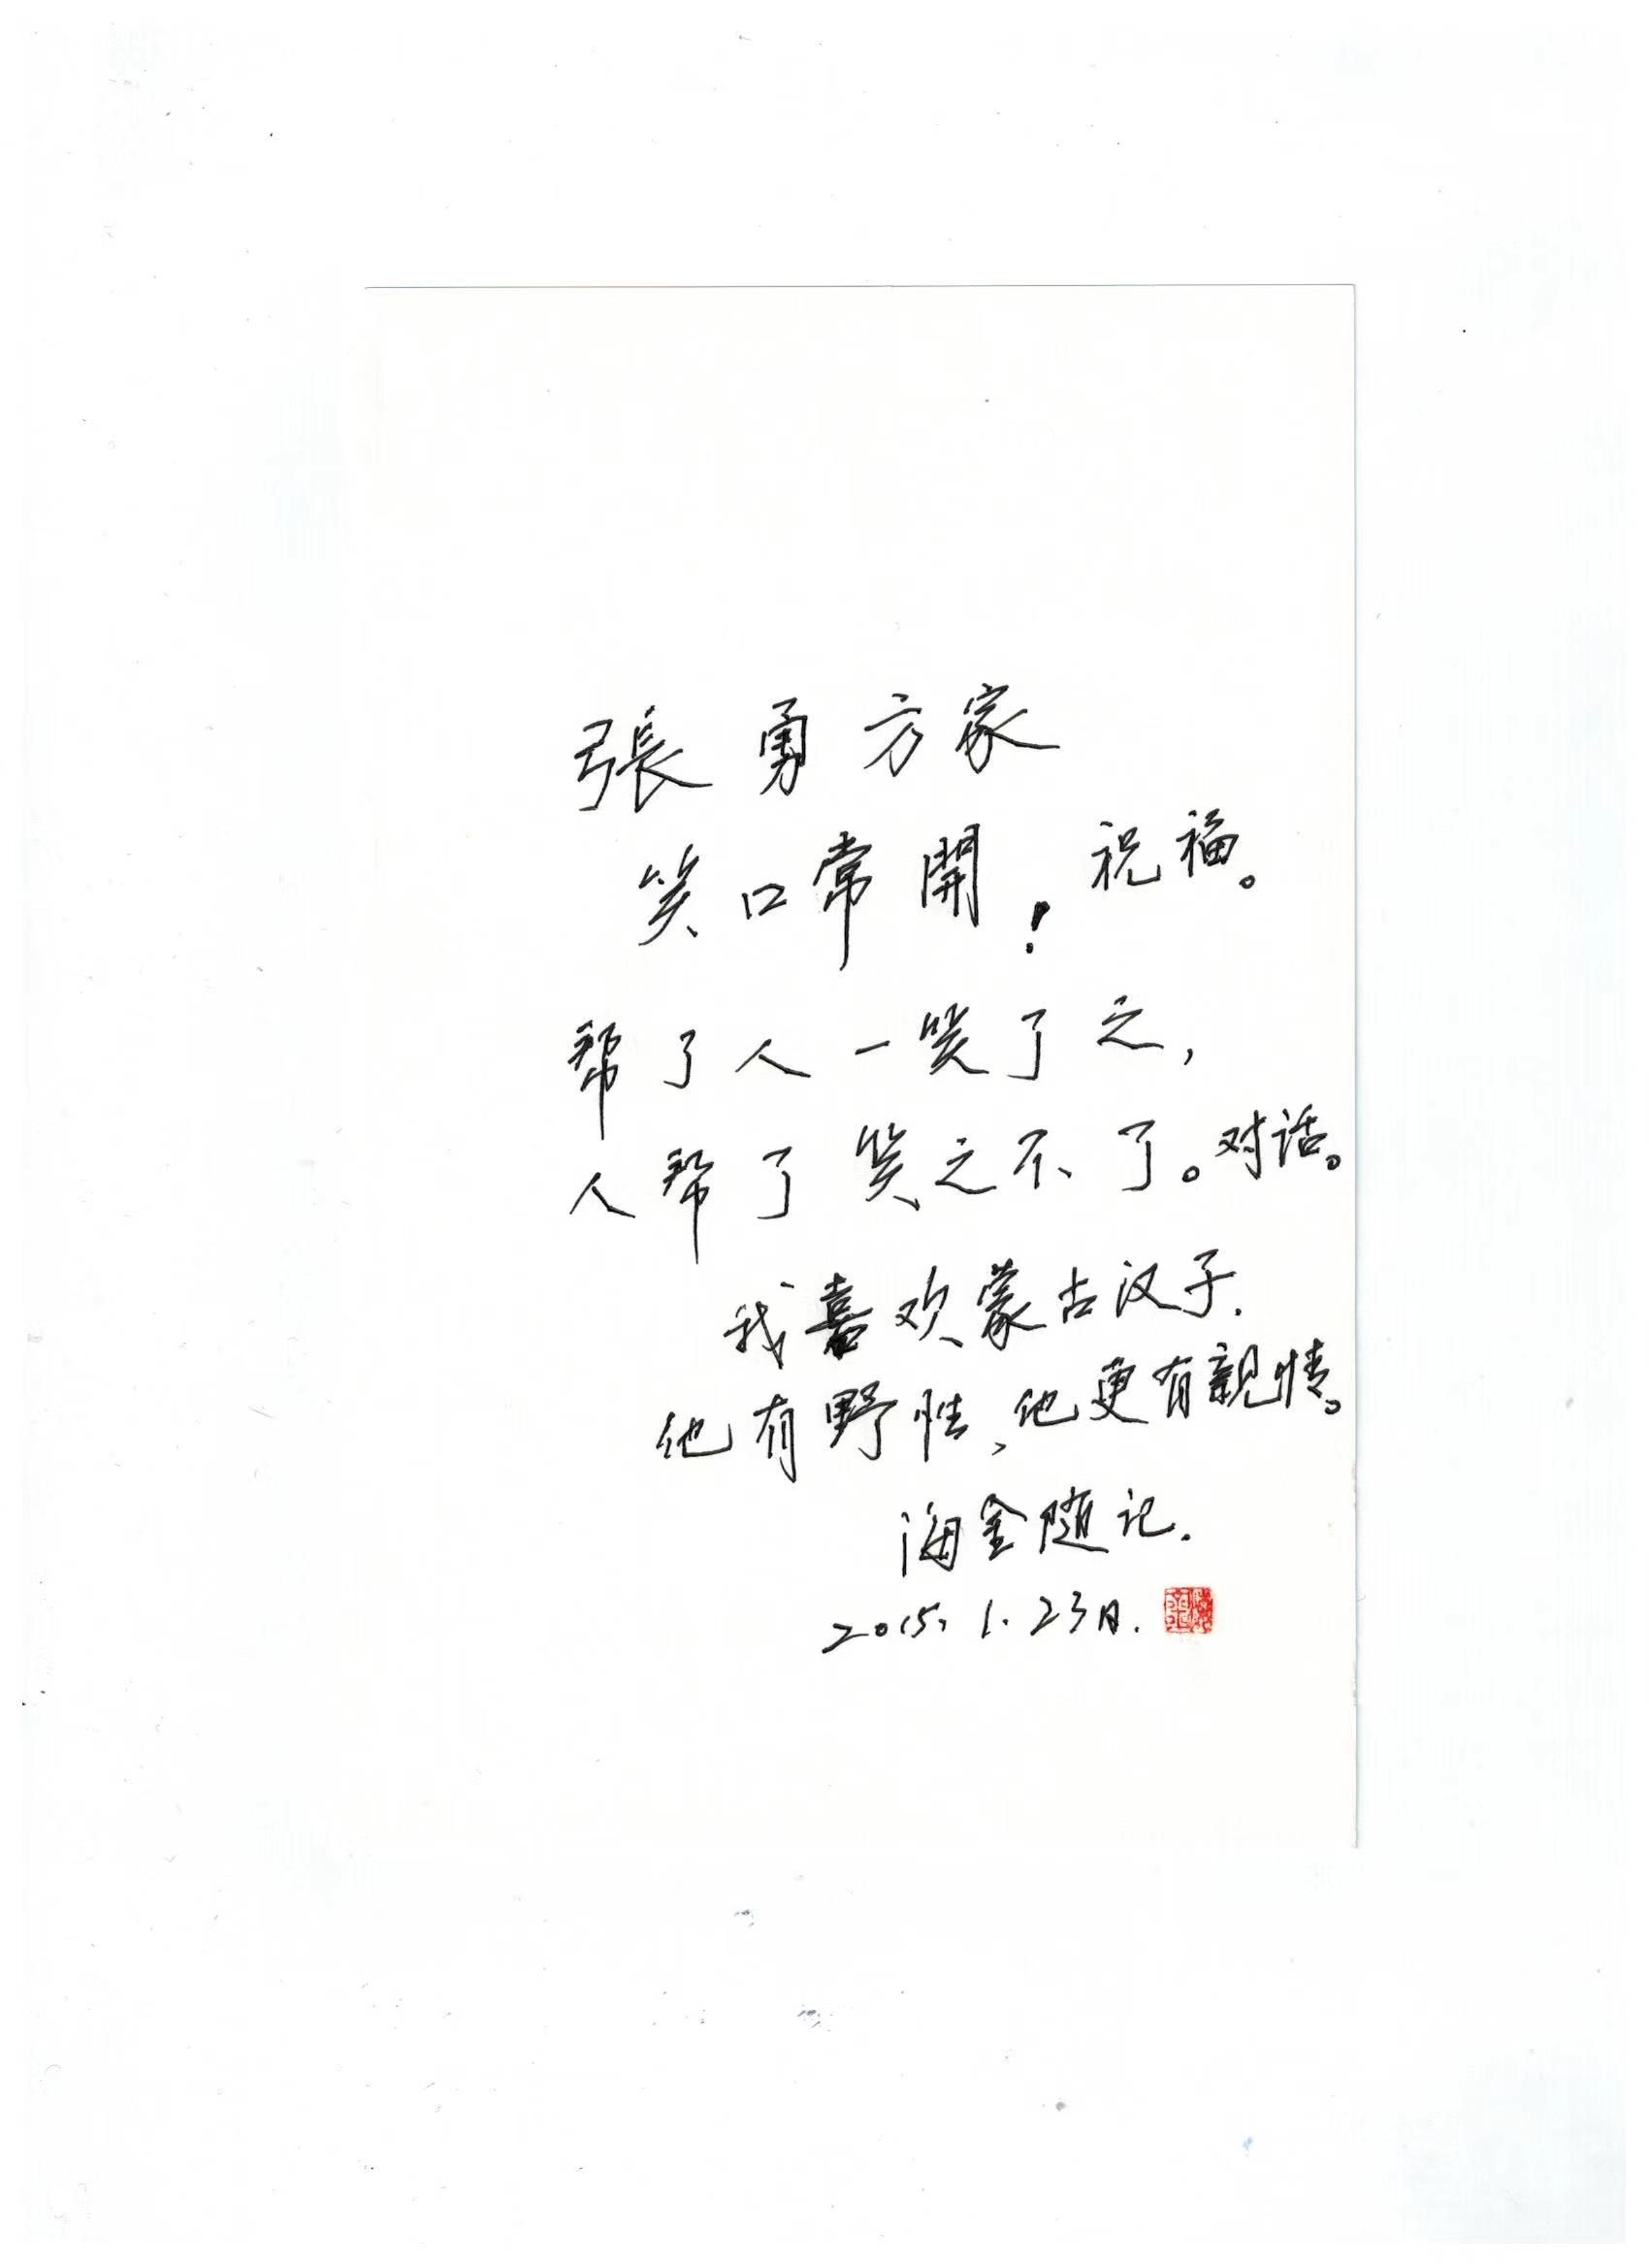 張勇方家
笑口常開！祝福。
帮了人一笑了之，
人帮了笑之不了。对话。
我喜欢蒙古汉子.
他有野性、他更有親情。
海金随记.
2015.1.23日.